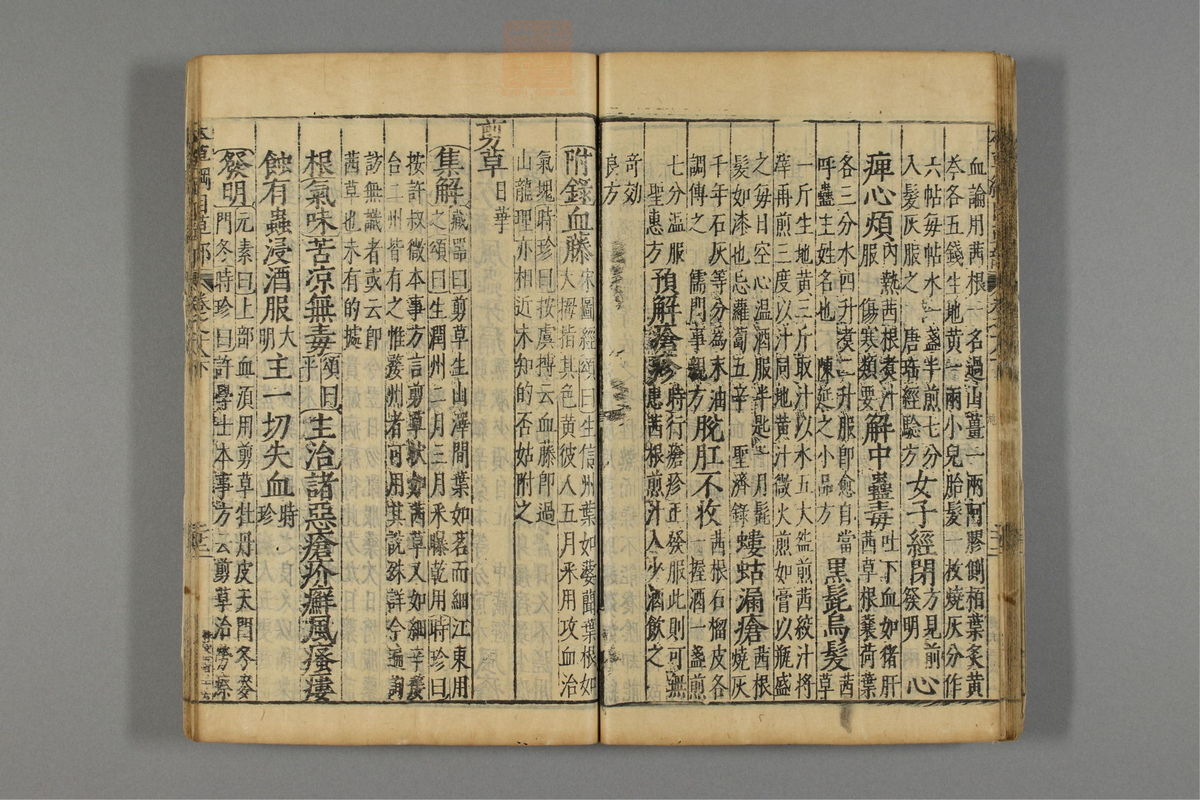 血論用茜根一名過山薑一兩阿膠側栢葉炙黃
芩各五錢生地黃一兩小兒胎髮一枚燒灰分作
六帖每帖水一盞半煎七分
入髮灰服之　唐瑤經驗方
女子經閉方見前發明心
痺心煩內熱茜根煮汁
服　傷寒類要
解中蠱毒吐下血如猪肝
茜草根蘘荷葉
各三分水四升煑二升服即愈自當
呼蠱主姓名也　陳延之小品方
黑髭烏髮茜
草
一斤生地黃三斤取汁以水五大盌煎茜絞汁將
滓再煎三度以汁同地黃汁微火煎如膏以瓶盛
之每日空心温酒服半匙一月髭
髮如漆也忌蘿蔔五辛　聖濟錄
螻蛄漏瘡茜根
燒灰
千年石灰等分為末油
調傅之　儒門事親方
脫肛不收茜根石榴皮各
一握酒一盞煎
七分溫服
聖惠方
預解瘡疹時行瘡疹正發服此則可無
患茜根煎汁入少酒飲之
奇効
良方
附錄血藤宋圖經頌曰生信州葉如蔢蔄葉根如
大拇指其色黃彼人五月采用攻血治
氣塊時珍曰按虞摶云血藤即過
山龍理亦相近未知的否姑附之
剪草日華
集解藏器曰剪草生山澤間葉如茗而細江東用
之頌曰生潤州二月三月采曝乾用時珍曰
按許叔微本事方言剪草狀如茜草又如細辛婺
台二州皆有之惟婺州者可用其說殊詳今徧詢
訪無識者或云即
茜草也未有的據
根氣味苦凉無毒頌曰
平
主治諸惡瘡疥癬風瘙瘻
蝕有蟲浸酒服大
明
主一切失血時
珍
發明元素曰上部血湏用剪草牡丹皮天門冬麥
門冬時珍曰許學士本事方云剪草治勞瘵